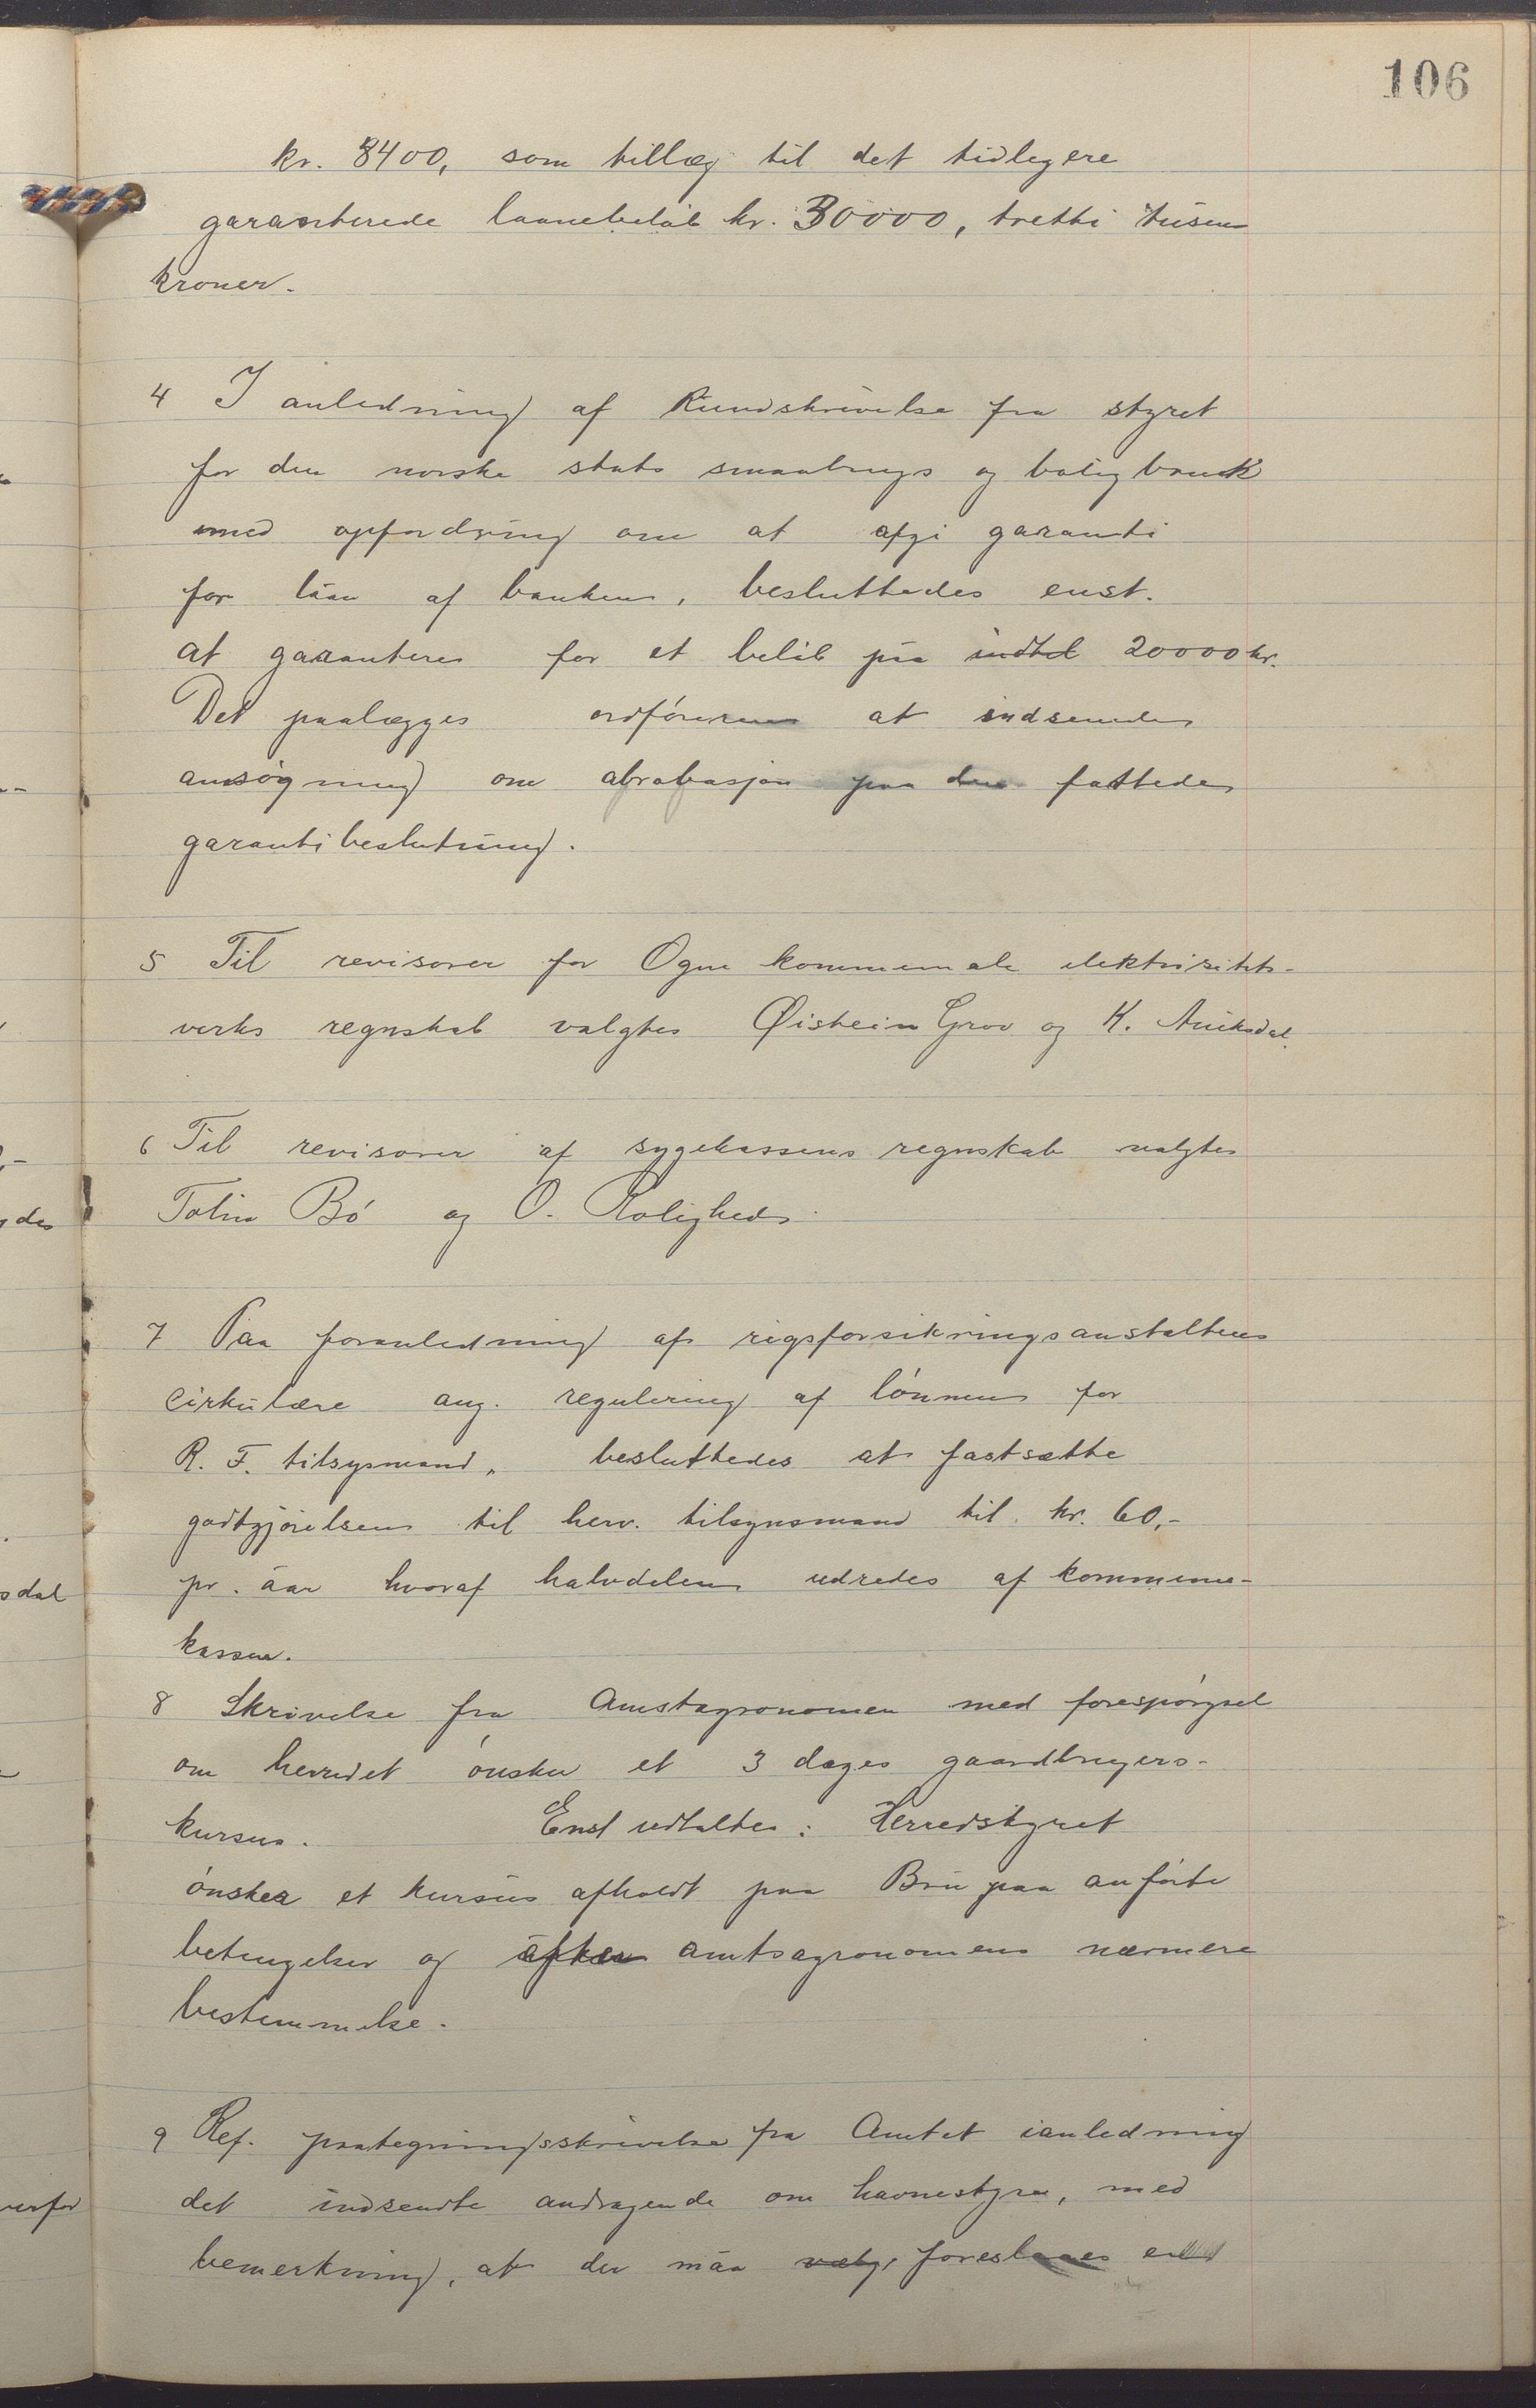 106
kr. 8400, som tillæg til det tidligere
garanterede laanebeløb kr. 30000, tretti tusen
kroner.
4 I anledning af Rundskrivelse fra styret
for den norske stats smaabrugs og boligbank
med opfordring om at afgi garanti
for låan af banken, besluttedes enst.
at garantere for et beløb paa indtil 20000 kr.
Det paalægges ordføreren at indsende
ansøgning om abrobasjon paa den fattede
garantibeslutning.
5 Til revisorer for Ogne kommunale elektrisitets-
verks regnskab valgtes Øistein Grov og K. Auksdal.
6 Til revisorer af sygekassens regnskab valgtes
Bø og O. Roligheds.
7 Paa foranledning af rigsforsikringsanstaltens
Cirkulære ang. regulering af lønnen for
R. F. tilsynsmand, besluttedes at fastsætte
godtgjørelsen til herv. tilsynsmand til kr. 60,-
pr. åar hvoraf halvdelen udredes af kommune-
kassen.
8 Skrivelse fra Amtsagronomen med forespørgsel
om herredet ønsker et 3 dages gaardbrugers-
kursus. Enst udtaltes: Herredstyret
ønsker et kursus afholdt paa Bru paa anførte
betingelser og efter amtsagronomens nærmere
bestemmelse.
9 Ref. paategningsskrivelse fra Amtet ianledning
det indsendte andragende om havnestyre, med
bemerkning, at der måa vælg, foreslaaes